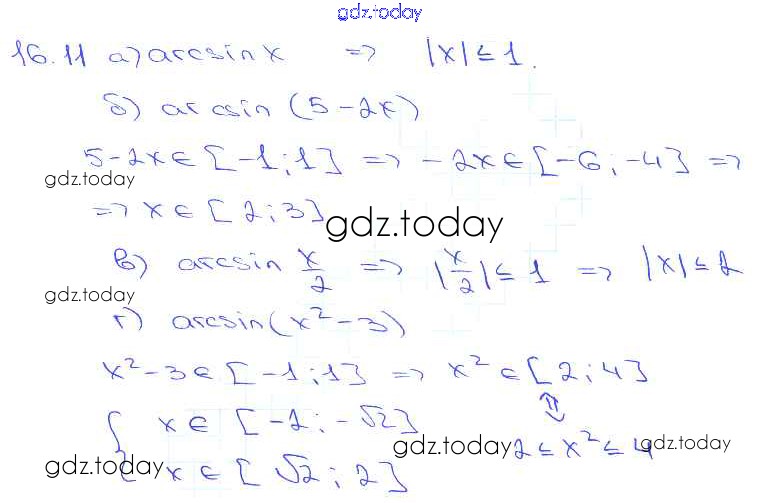 gdz.today
16.11 а) arcsin x => |x| ≤ 1.
б) arcsin (5-2x)
5-2x ∈ [-1;1] => -2x ∈ [-6;-4] =>
gdz.today
=> x ∈ [2;3]
gdz.today
в) arcsin x/2 => |x/2| ≤ 1 => |x| ≤ 2
gdz.today
г) arcsin(x²-3)
x²-3 ∈ [-1;1] => x² ∈ [2;4]
⇕
{ x ∈ [-2;-√2]
gdz.today 2 ≤ x² ≤ 4 gdz.today
gdz.today x ∈ [√2;2]